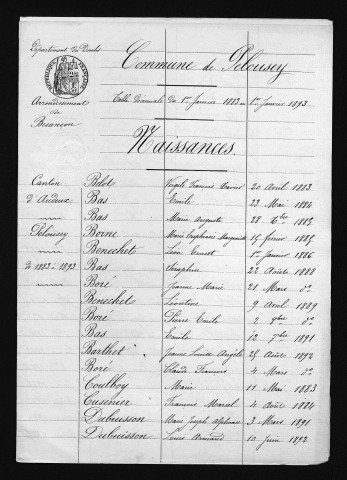 Département du Doubs
Commune de Pelousey
Arrondissement de Besançon
Table décennale du 1er Janvier 1883 au 1er Janvier 1893
Naissances.
Canton Belot Virgile Francois Xavier 20 Avril 1883
d'Audeux Bas Emile 23 Mai 1884
Bas Marie Auguste 28 Xbre 1885
Pelousey Borne Marie Stéphanie Marguerite 15 février 1885
Benechet Léon Ernest 1er janvier 1886
de 1883 à 1893 Bas Séraphin 22 Août 1888
Boré Jeanne Marie 21 Mars do
Benechet Léontine 9 Avril 1889
Boré Pierre Emile 2 9bre do
Bas Emile 12 7bre 1891
Barthet Jeanne Louise Angèle 28 Août 1892
Boré Claude Francois 4 Mars do
Coulboy Marie 11 Mai 1883
Cusenier François Marcel 4 Août 1884
Dubuisson Marie Joseph Alphonse 3 Mars 1891
Dubuisson Louis Armand 10 Juin 1892